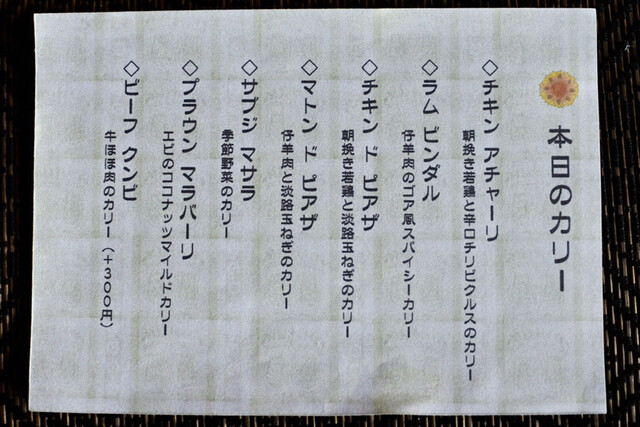 本日のカリー
◇チキン アチャーリ
朝挽き若鶏と辛口チリピクルスのカリー
◇ラム ビンダル
仔羊肉のゴア風スパイシーカリー
◇チキン ド ピアザ
朝挽き若鶏と淡路玉ねぎのカリー
◇マトン ド ピアザ
仔羊肉と淡路玉ねぎのカリー
◇サブジ マサラ
季節野菜のカリー
◇プラウン マラバーリ
エビのココナッツマイルドカリー
◇ビーフ クンビ
牛ほほ肉のカリー（＋３００円）